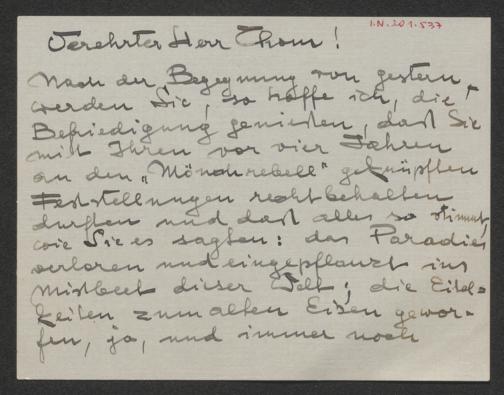 I.N. 201.537
Verehrter Herr Thom!
Nach der Begegnung von gestern,
werden Sie, so hoffe ich, die
Befriedigung genießen, daß Sie
mit Ihren vor vier Jahren
an den „Mönchrebell" geknüpften
Feststellungen rechtbehalten
durften und daß alles so stimmt,
wie Sie es sagten: das Paradies
verloren und eingepflanzt ins
Mistbeet dieser Welt; die Eitel-
keiten zum alten Eisen gewor-
fen, ja, und immer noch